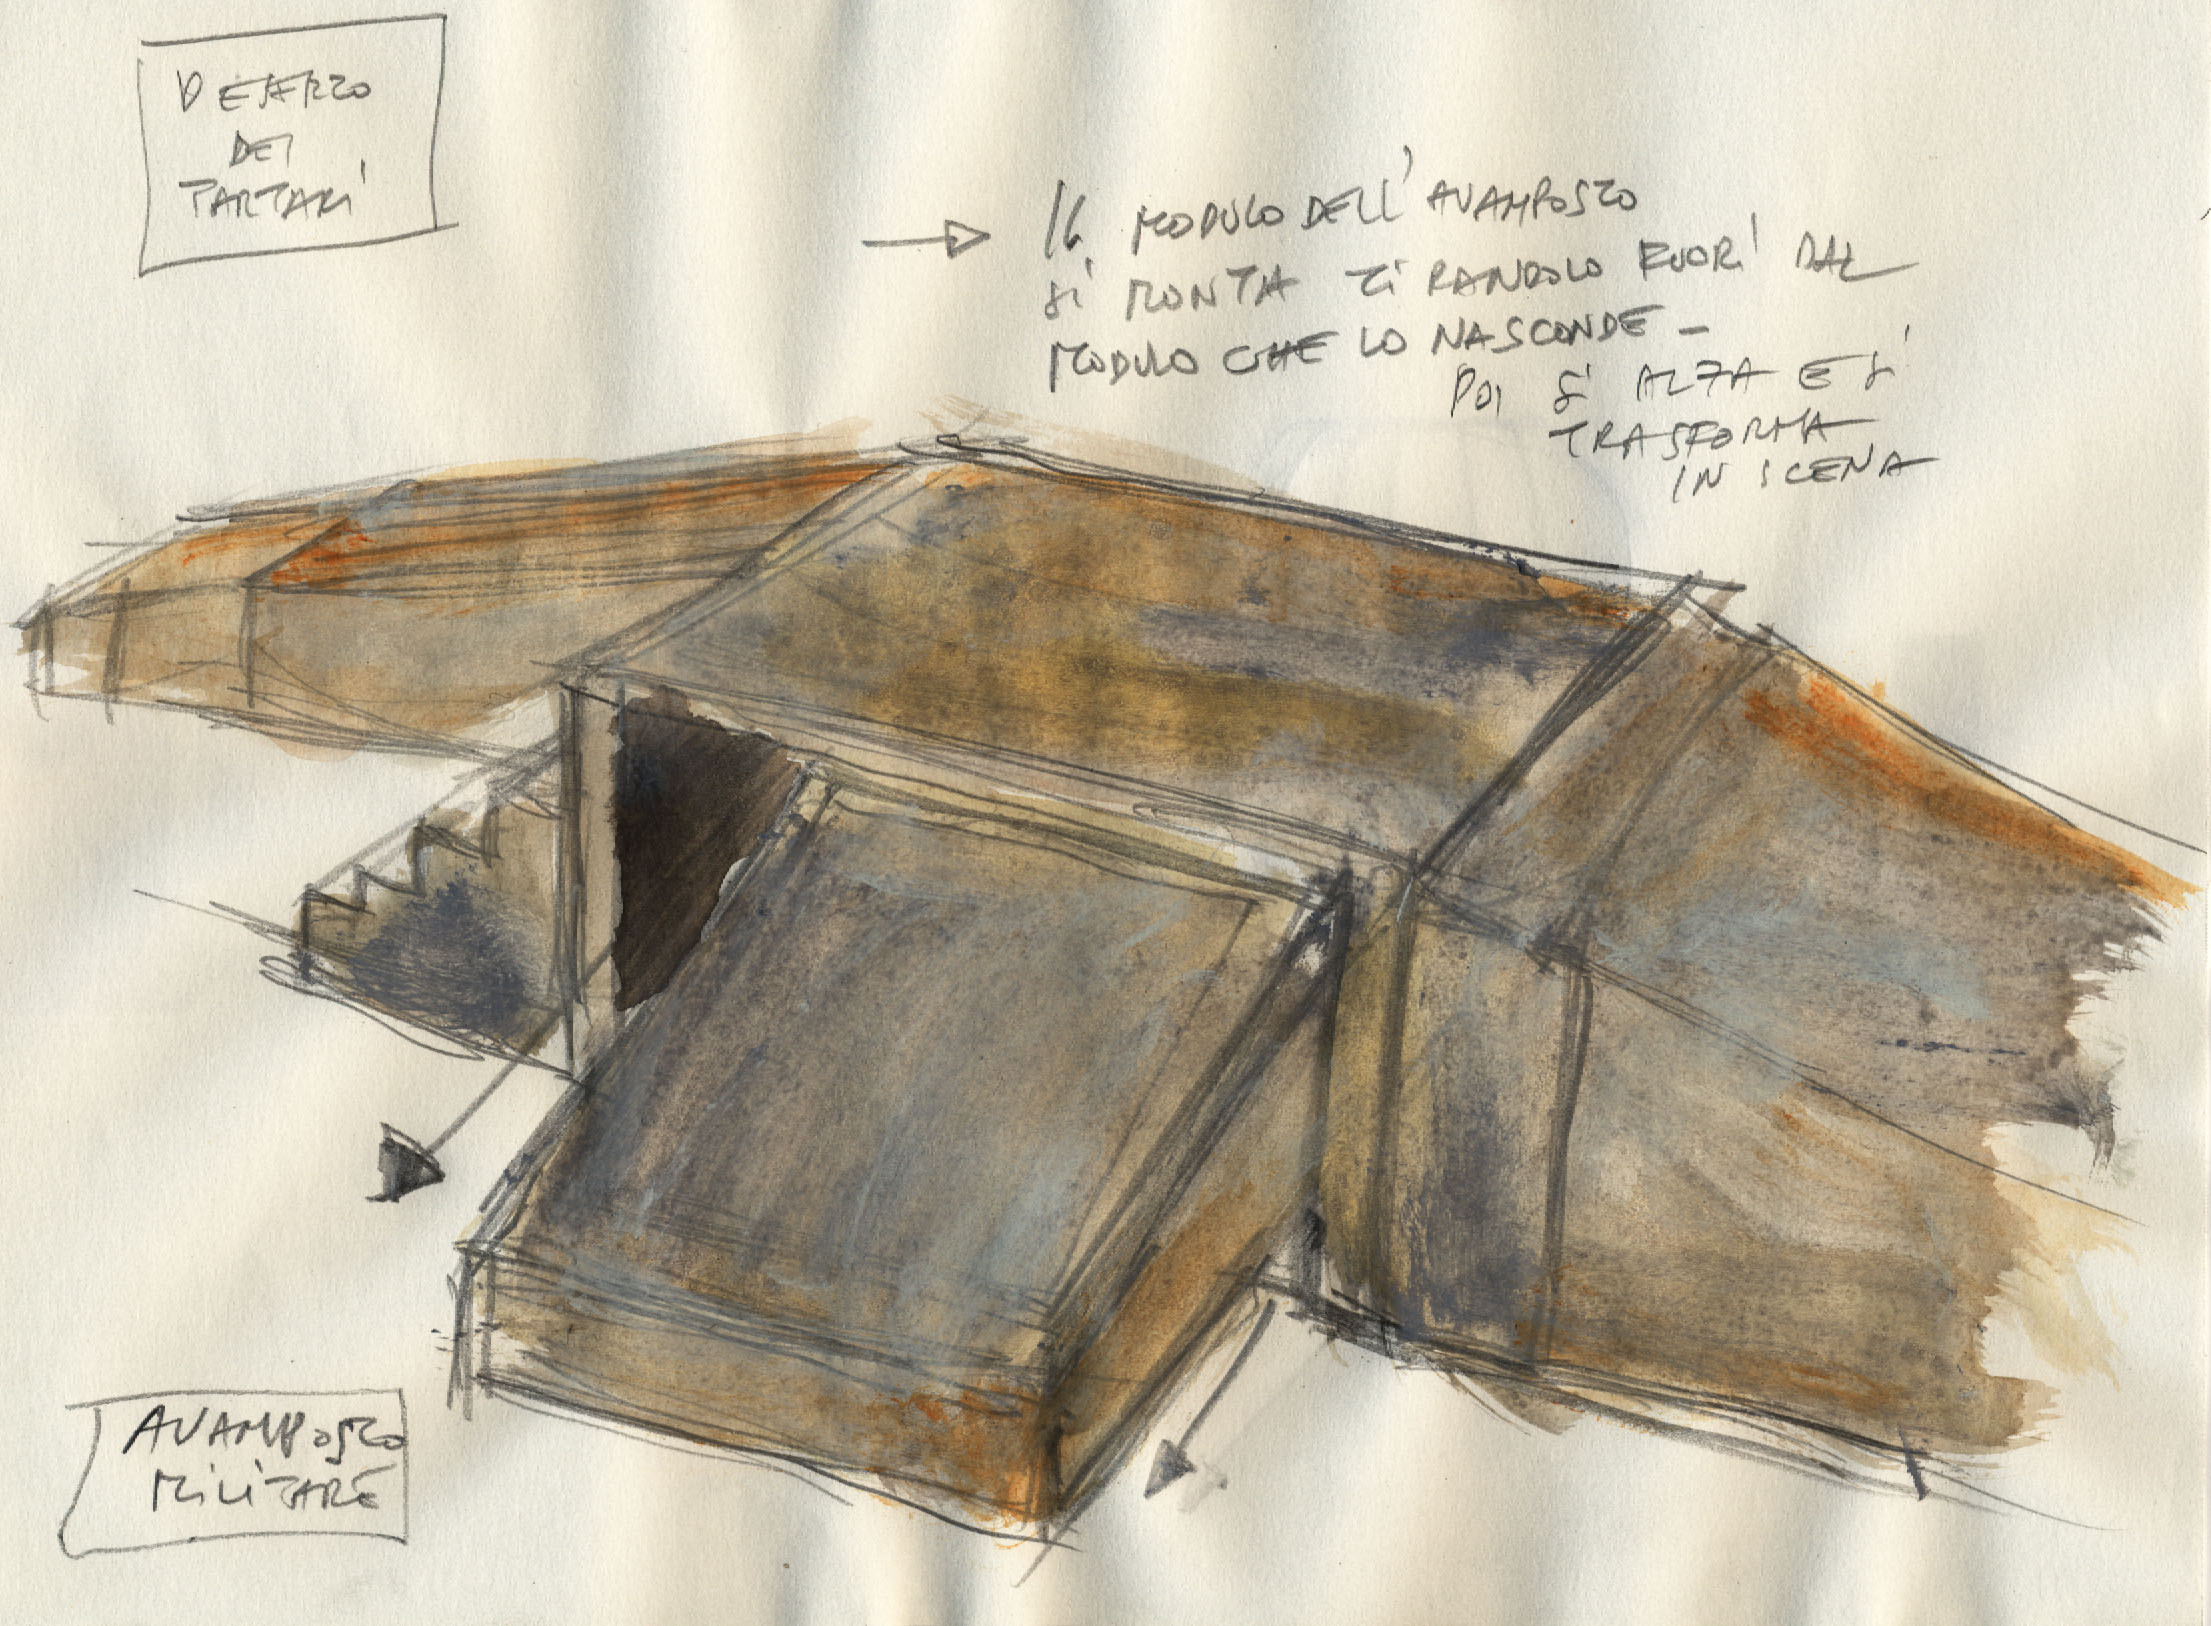 DESERTO
DEI
TARTARI
IL MODULO DELL'AVAMPOSTO
SI MONTA TIRANDOLO FUORI DAL
MODULO CHE LO NASCONDE -
POI SI ALZA E SI
TRASFORMA
IN SCENA
AVAMPOSTO
MILITARE